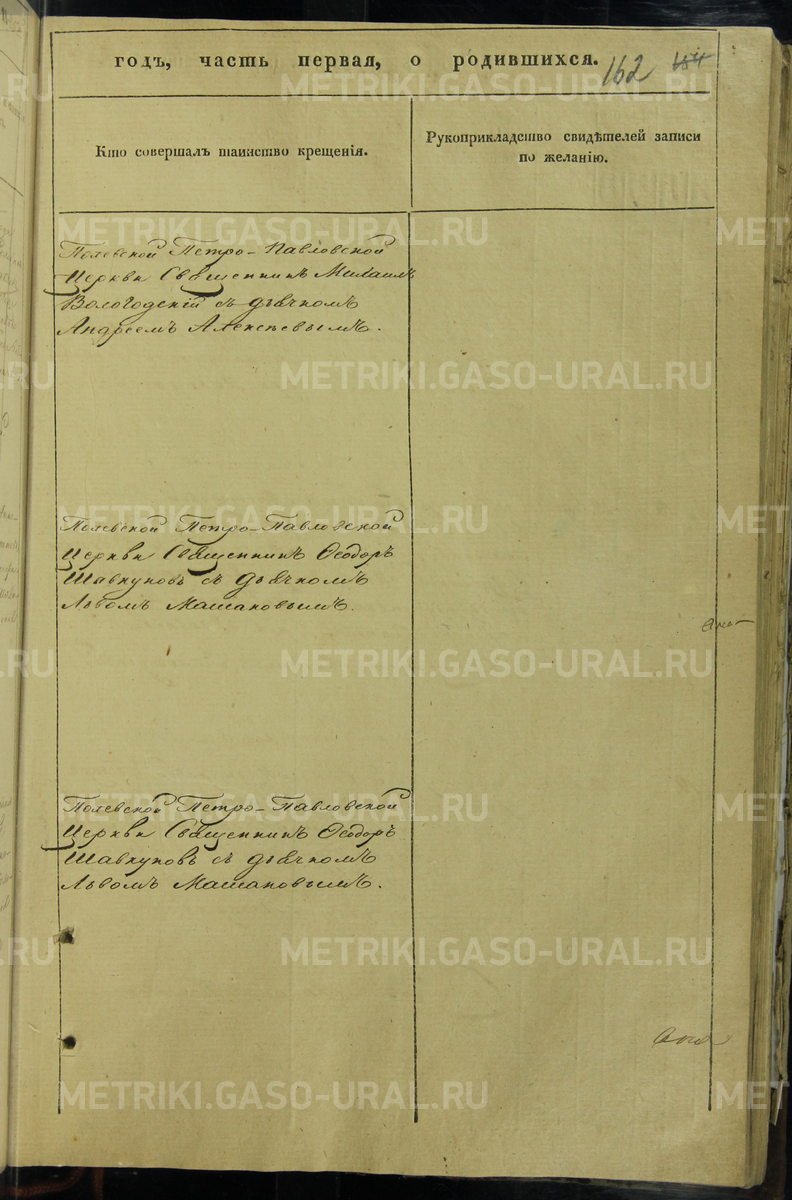 годъ, часть первая, о родившихся.
162
Кто совершалъ таинство крещенія.
Рукоприкладство свидѣтелей записи
по желанію.
Полевской Петро-Павловской
Церкви Священникъ Михаилъ
Вологодскій съ дьячкомъ
Андреемъ Алексѣевымъ.
Полевской Петро-Павловской
Церкви Священникъ Ѳеодоръ
Шавкуновъ съ дьячкомъ
Львомъ Машановымъ.
Полевской Петро-Павловской
Церкви Священникъ Ѳеодоръ
Шавкуновъ съ дьячкомъ
Львомъ Машановымъ.
METRIKI.GASO-URAL.RU